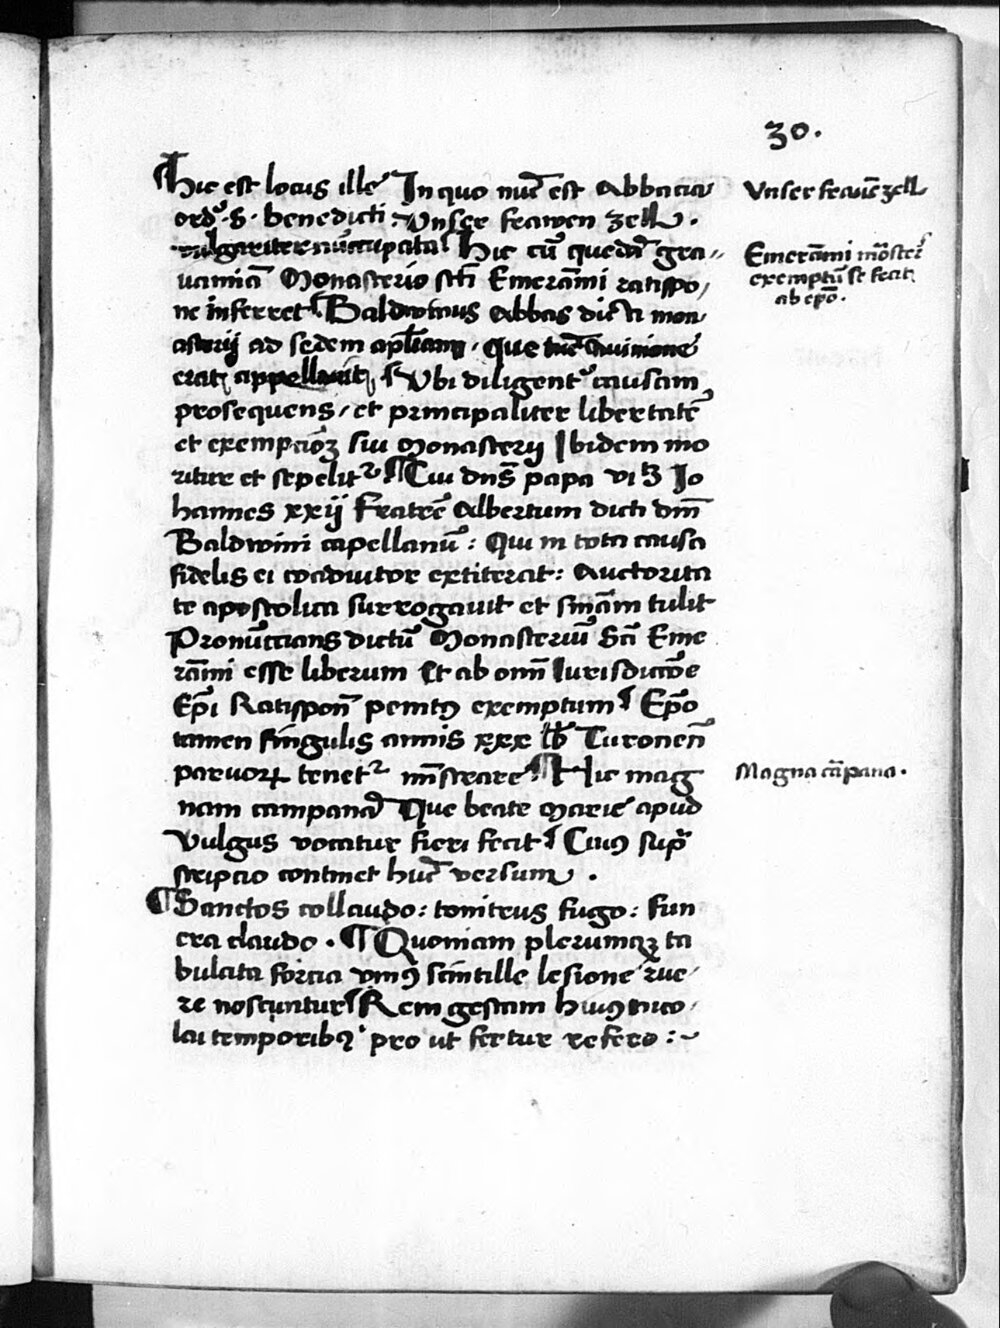 30.
Hic est locus ille In quo nūc est Abbacia
ord̄ s. benedicti. Vnser frawen zell.
vulgariter nūcupata Hic cū quedā gra„
uamīa Monasterio scti Emerāmi ratispo,
ne inferret Baldwinus Abbas dicti mon
asterij ad sedem aplicam. Que tūc Auinione
erat, appellauit, Vbi diligent' causam
prosequens, et principaliter libertatē
et exempciōꝫ sui Monasterij Ibidem mo
ritur et sepelit'. Cui dns papa viꝫ Jo
hannes xxij Fratrē Albertum dicti dm̄
Baldwini capellanū: Qui in tota causa
fidelis ei coadiutor extiterat: Auctorita
te apostolica surrogauit et snīam tulit
Pronūccians dictū Monasteriū Scī Eme
rāmi esse liberum Et ab omī Iurisdictōe
Ep̄i Ratisponn̄ penitꝰ exemptum Ep̄o
tamen singulis annis xxx lb Turonen̄
paruorꝝ tenet' mīstrare Hic mag
nam campanā Que beate Marie apud
Vulgus vocatur fieri fecit Cuiꝰ sup̄
scripcio continet hūc versum.
¶ Sanctos collaudo: tonitrus fugo: fun
era claudo. ¶ Quoniam plerumqꝫ ta
bulata forcia viniꝰ scintille lesione rue,
re noscuntur Rem gestam huiꝰ nico,
lai temporibꝰ pro ut fertur refero :~
Vnser frawē zell
Emerāmi mōster̄
exemptū se fecit
ab ep̄o.
Magna cāpana.